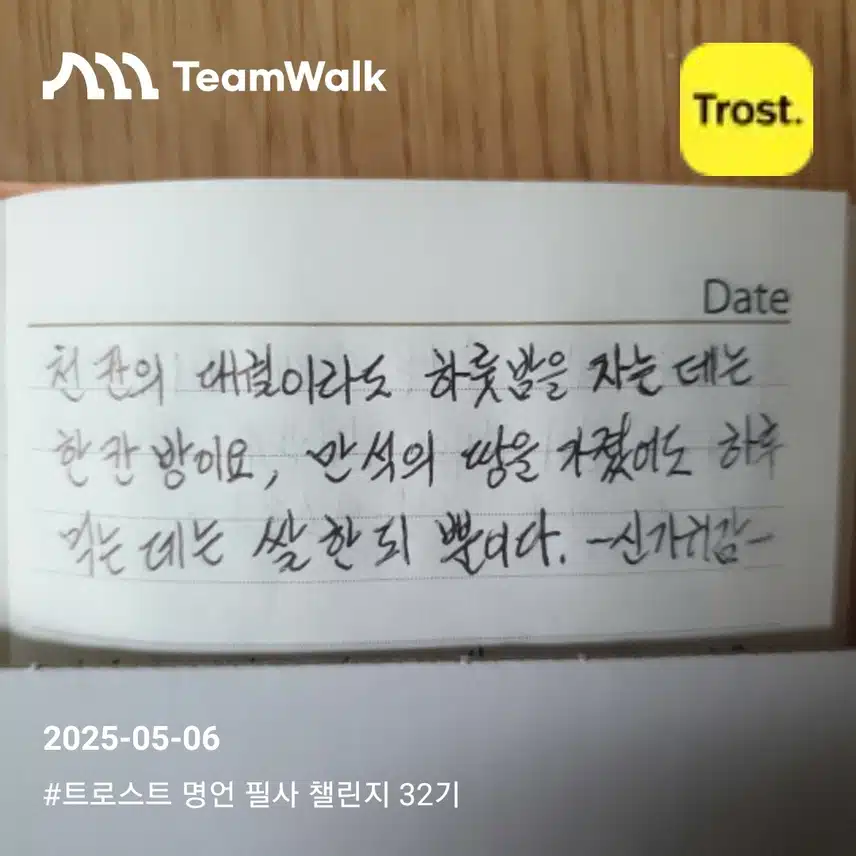 TeamWalk
Trost.
Date
천 칸의 대궐이라도 하룻밤을 자는 데는
한 칸 방이요, 만석의 땅을 가졌어도 하루
먹는 데는 쌀 한 되 뿐이다. -신가귀감-
2025-05-06
#트로스트 명언 필사 챌린지 32기